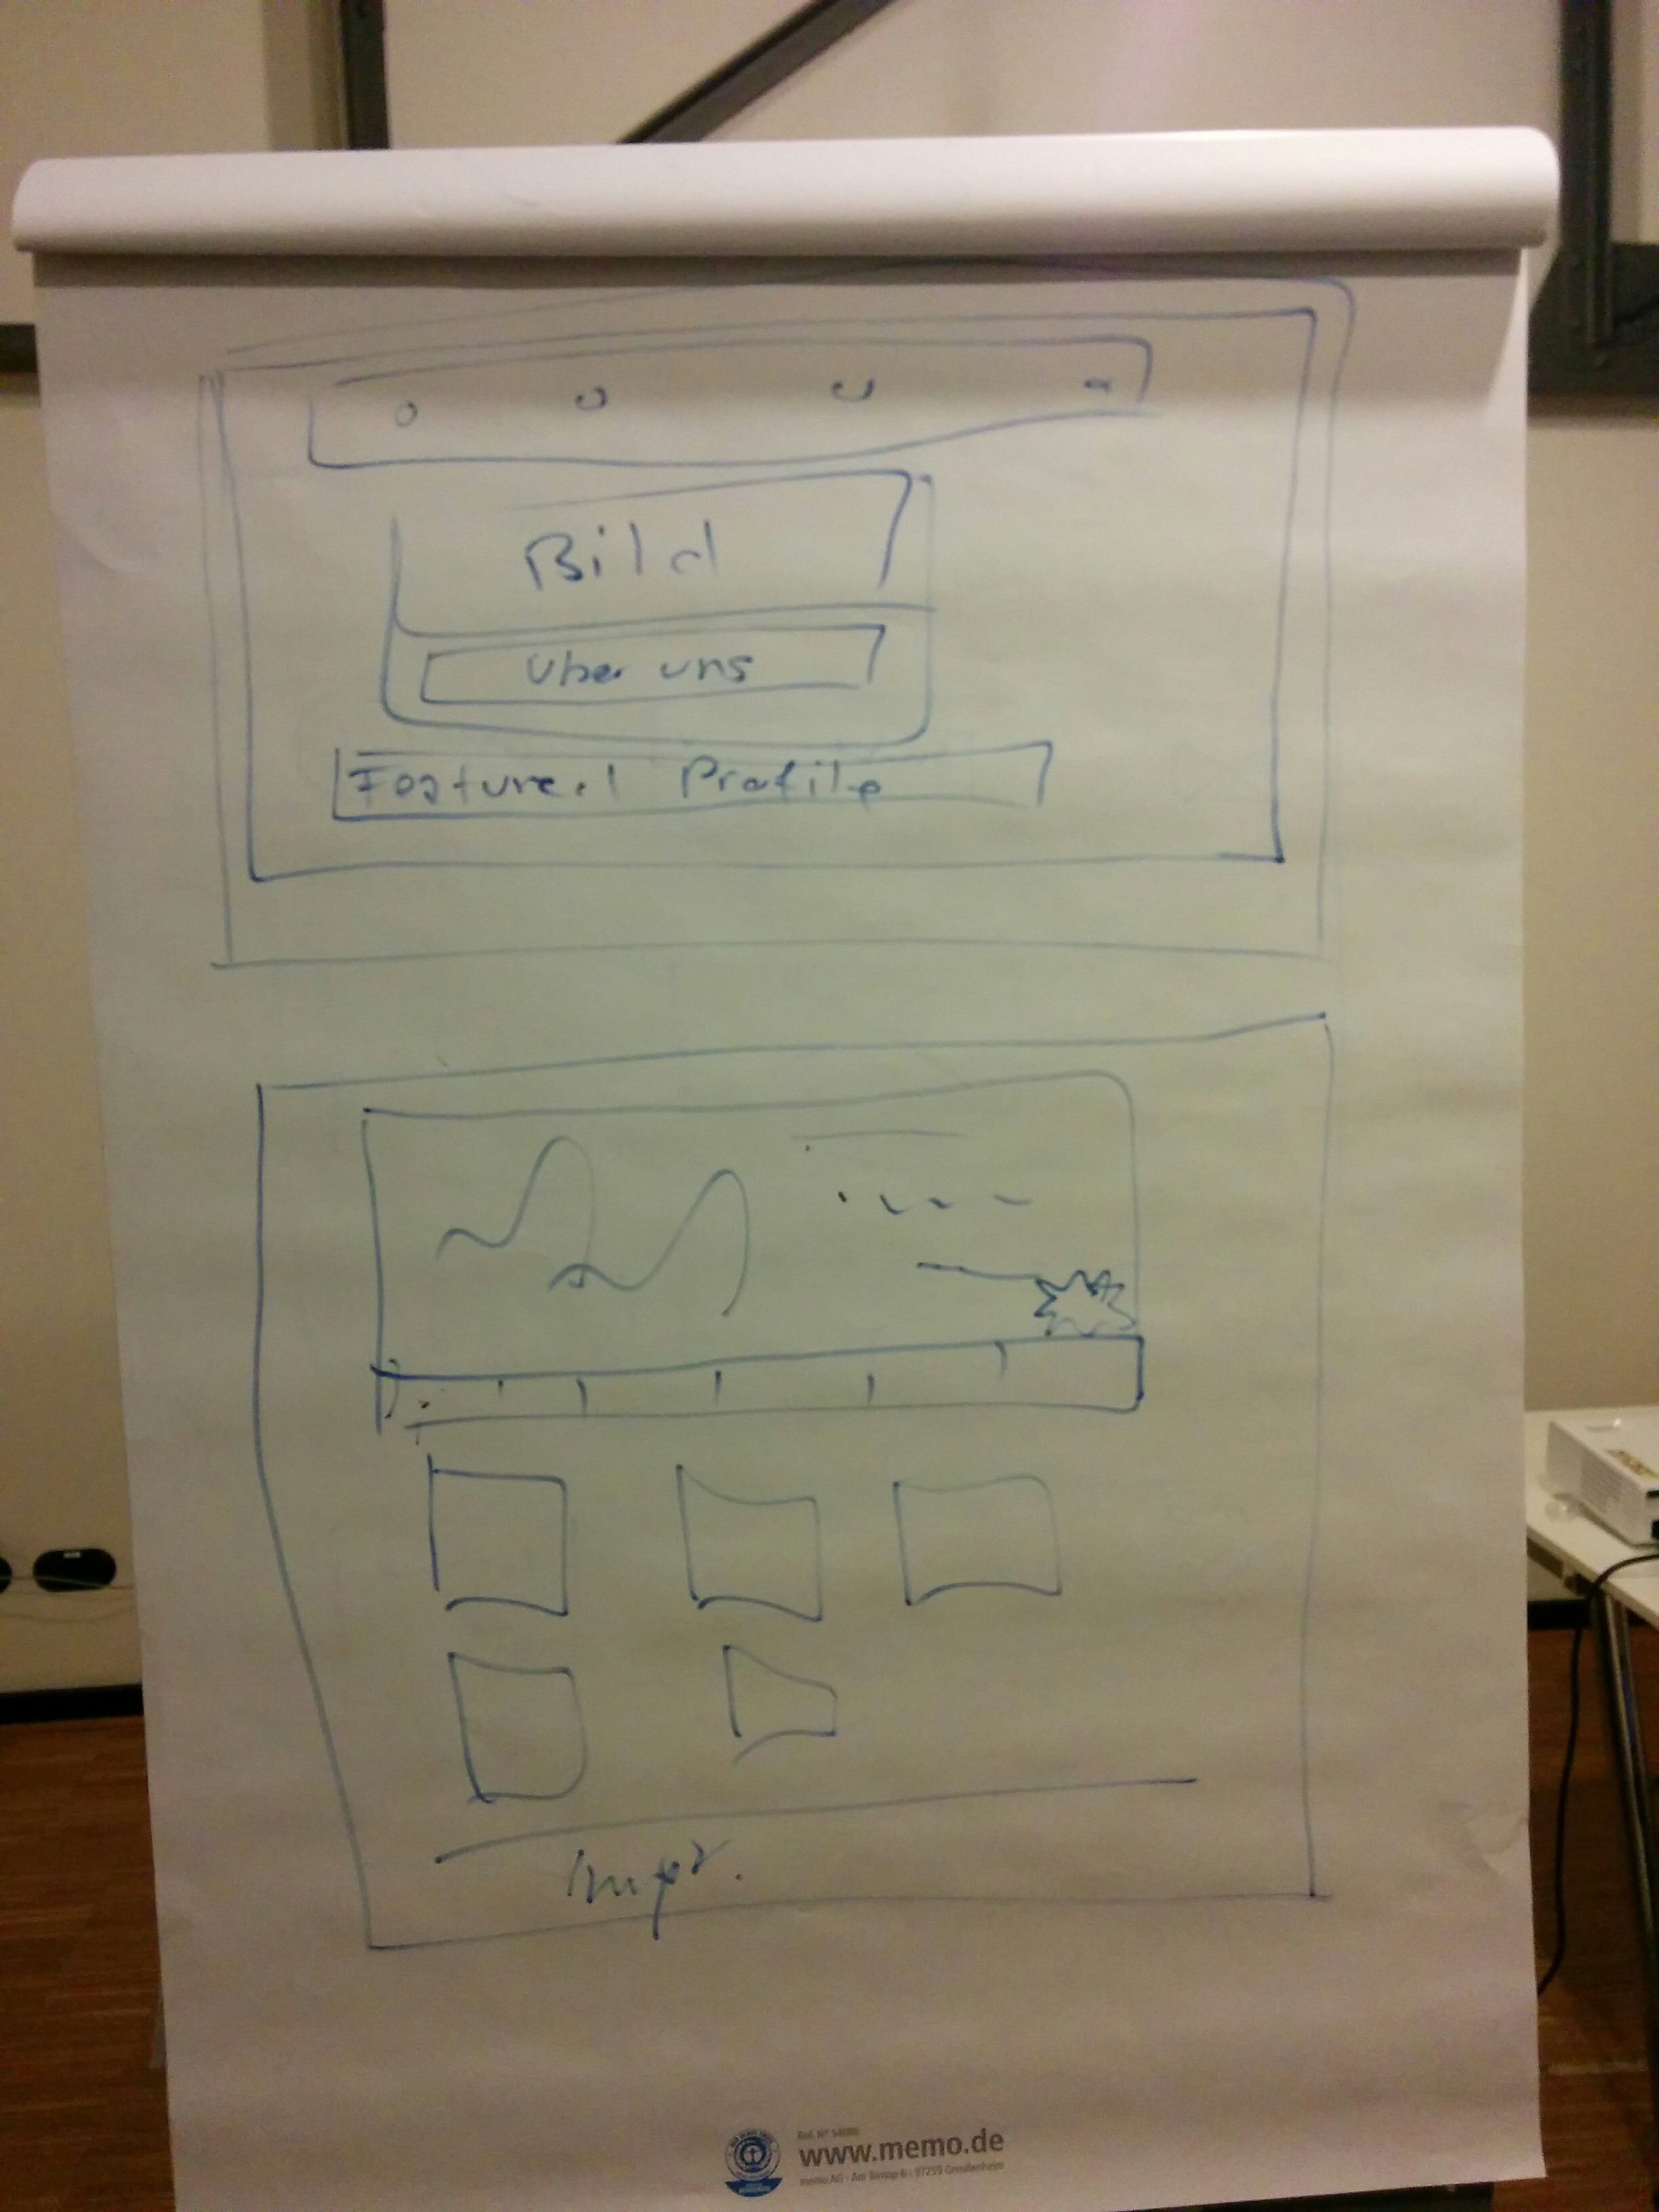 Bild
Über uns
Featured Profile
Impr.
www.memo.de
memo AG · Am Biotop 6 · 97259 Greußenheim